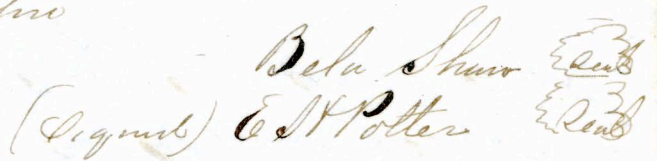 Bela Shaw Seal
(Signed) E S H Potter Seal